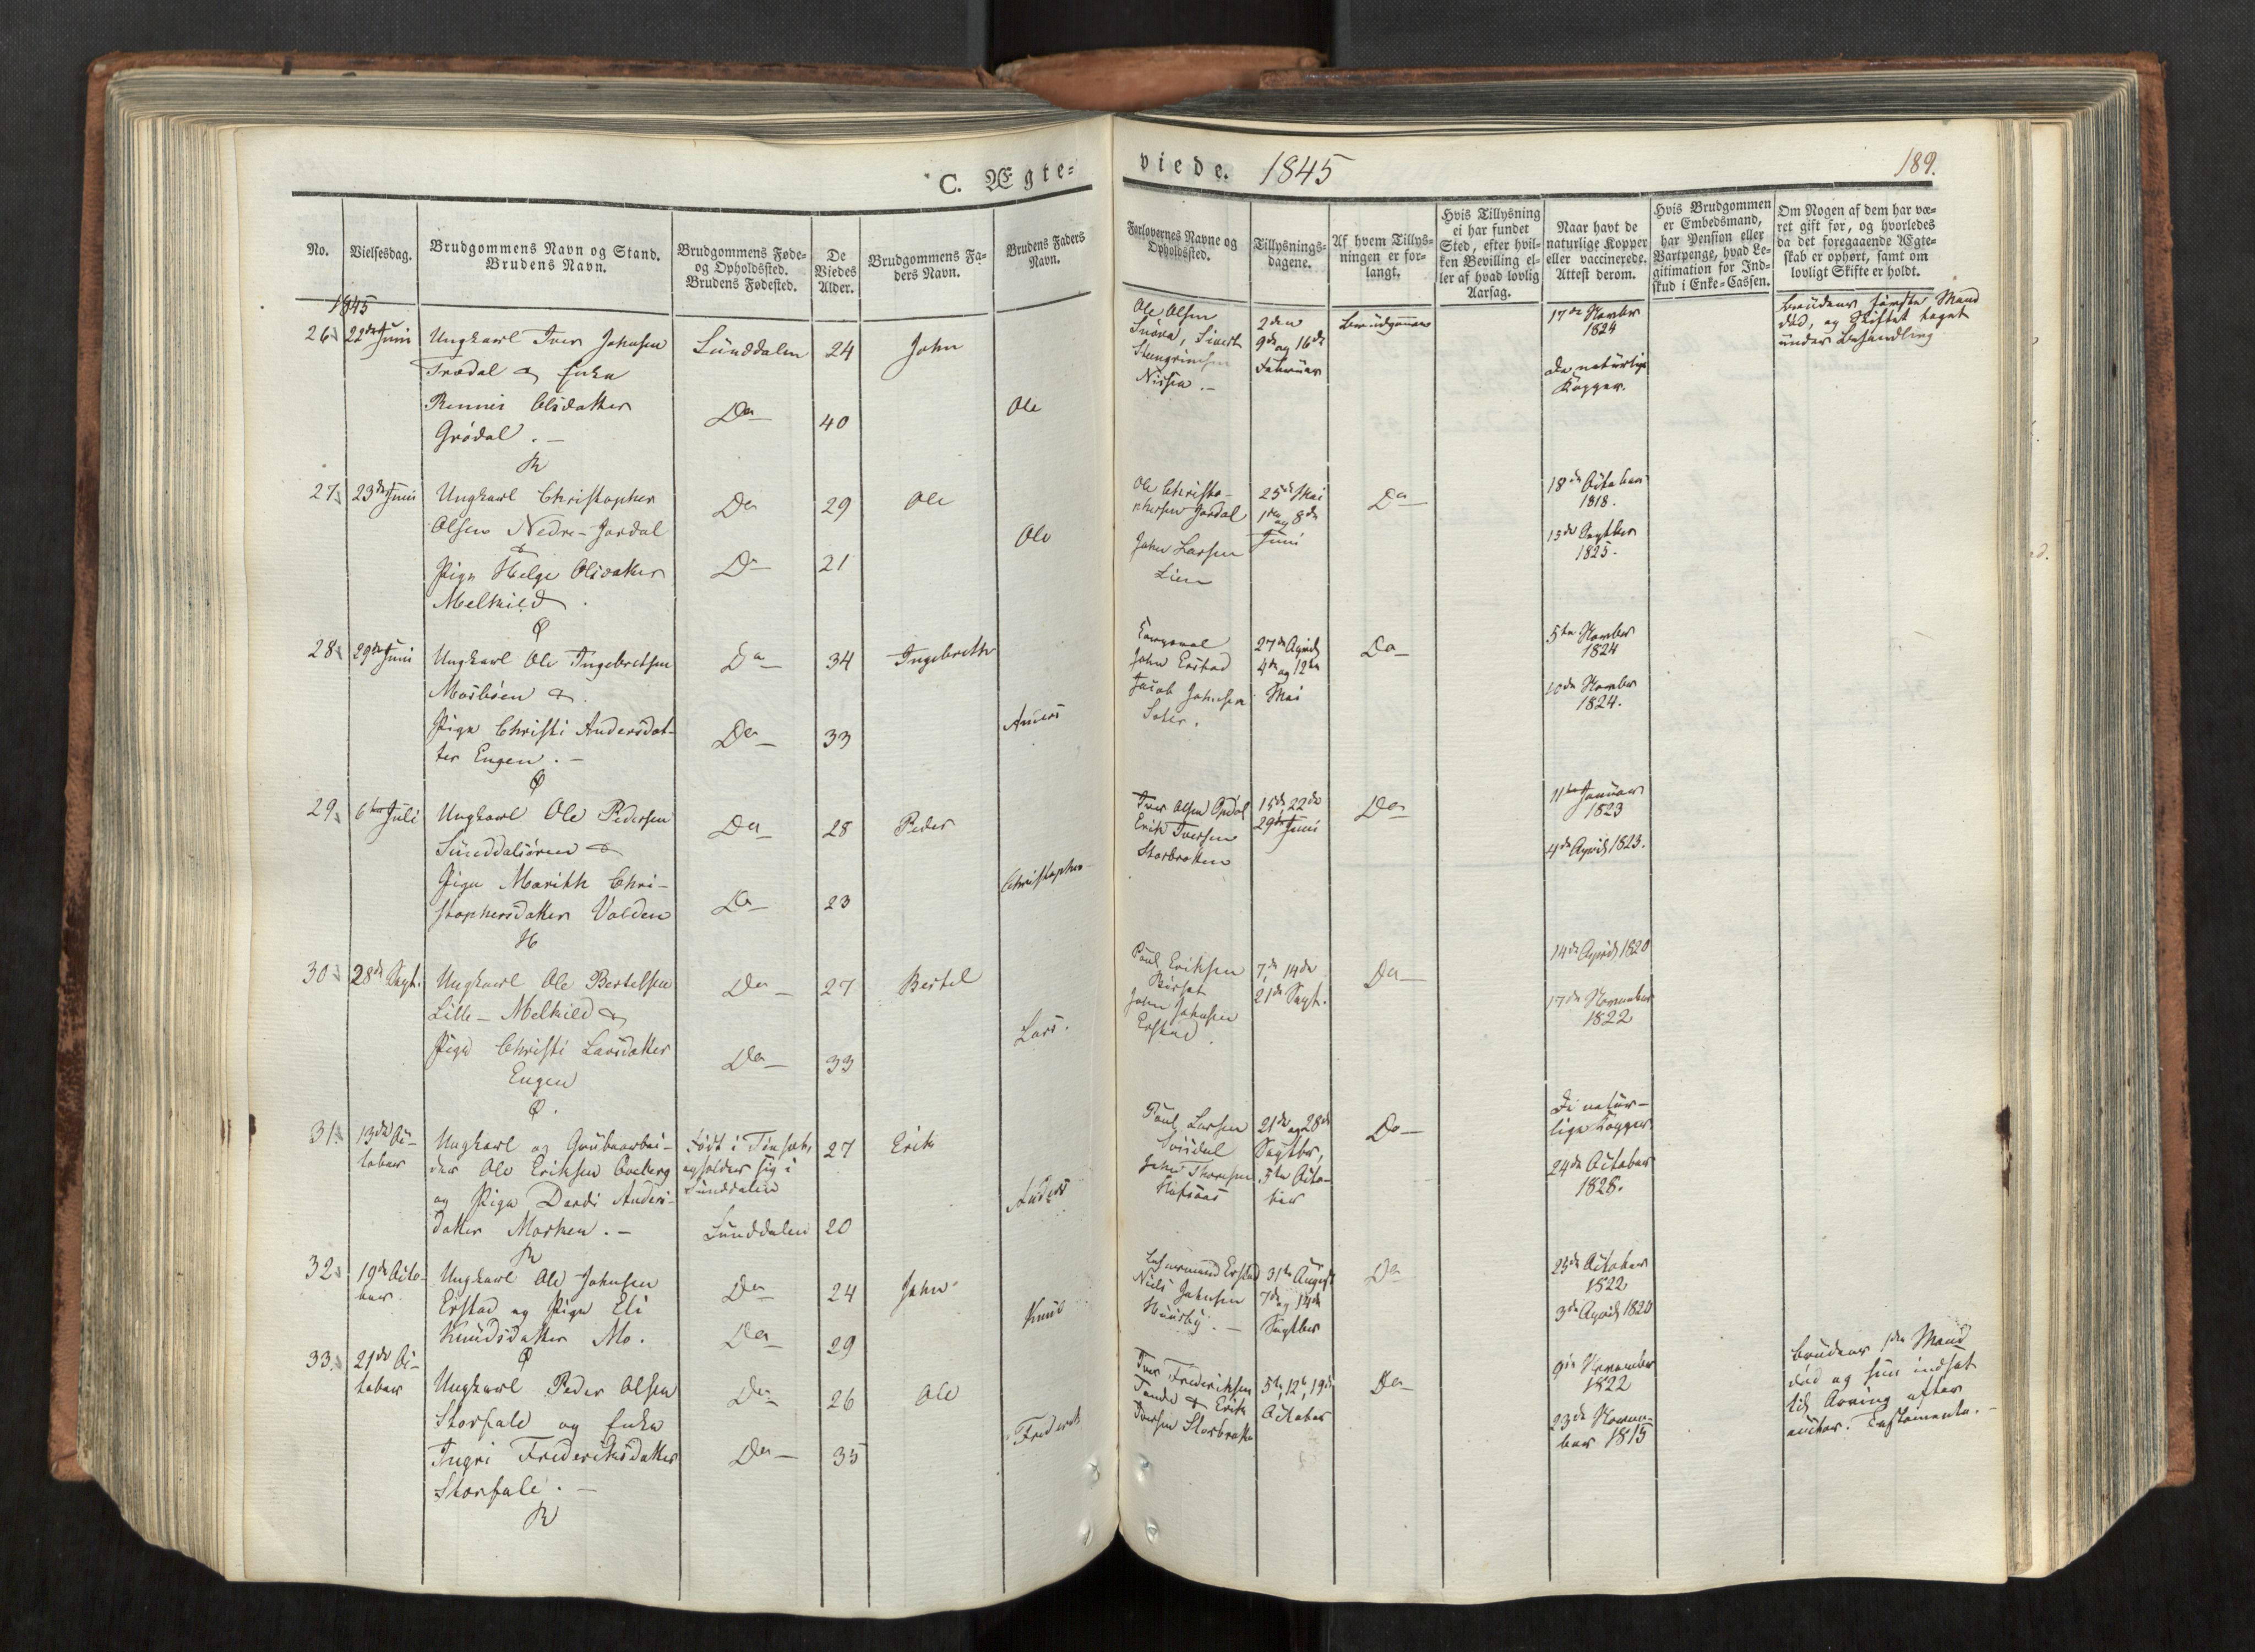 C. Ægte-
viede. 1845
189.
No.
Vielsesdag.
Brudgommens Navn og Stand.
Brudens Navn.
Brudgommens Føde-
og Opholdssted.
Brudens Fødested.
De
Viedes
Alder.
Brudgommens Fa-
ders Navn.
Brudens Faders
Navn.
Forlovernes Navne og
Opholdssted.
Tillysnings-
dagene.
Af hvem Tillys-
ningen er for-
langt.
Hvis Tillysning
ei har fundet
Sted, efter hvil-
ken Bevilling el-
ler af hvad lovlig
Aarsag.
Naar havt de
naturlige Kopper
eller vaccinerede.
Attest derom.
Hvis Brudgommen
er Embedsmand,
har Pension eller
Vartpenge, hvad Le-
gitimation for Ind-
skud i Enke-Cassen.
Om Nogen af dem har væ-
ret gift før, og hvorledes
da det foregaaende Ægte-
skab er ophørt, samt om
lovligt Skifte er holdt.
1845
26
22de Juni
Ungkarl Iver Johnsen
Trædal & Enke
Olsdatter
Grødal . –
Sunddalen
Do
24
40
John
Ole
Ole Olsen
Sivert
Stengrimsen
Nissen . –
2den
9de og 16de
Februar
Brudgommen
17de Novbr
1824
de naturlige
Kopper.
Brudens første Mand
død, og Skiftet taget
under Behandling
27
23de Juni
Ungkarl Christopher
Olsen Nedre-Jordal
&
Pige Helge Olsdatter
Melkild .
Do
Do
29
21
Ole
Ole
Ole Christo-
phersen Jordal
John Larsen
Lien
25de Mai
1ste og 8de
Juni
Do
18de Octobr
1818.
15de Septbr
1825.
28
29de Juni
Ungkarl Ole Ingebretsen
Mosbøen &
Pige Christi Andersdat-
ter Engen . –
Do
Do
34
33
Ingebreth
Anders
John Erstad
Jacob Johnsen
27de April
4de og 12te
Mai
Do
5te Novbr
1824
10de Novbr
1824.
29
6te Juli
Ungkarl Ole Pedersen
Sunddalsøren &
Pige Marith Chri-
stophersdatter Volden
Do
Do
28
23
Peder
Christopher
Iver Olsen Opdøl
Erik Iversen
Storbrotten
15de 22de
29de Juni
Do
11te Januar
1823
4de April 1823.
30
28de Sept.
Ungkarl Ole Bertelsen
Lille-Melkild &
Pige Christi Larsdatter
Engen
Do
Do
27
33
Bertel
Lars.
Poul Eriksen
John Johnsen
Erstad .
7de 14de
21de Sept.
Do
14de April 1820
17de November
1822
31
13de Oc-
tober
Ungkarl og Grubearbei-
der Ole Eriksen
og Pige Dordi Anders-
datter Morken . –
Født i
opholder sig i
Sunddalen
Sunddalen
27
20
Erik
Anders
Poul Larsen
John Thoresen
21de og 28de
Septbr,
5te Octo-
ber
Do
De natur-
lige Kopper
24de October
1828.
32
19de Octo-
ber
Ungkarl Ole Johnsen
Erstad og Pige Eli
Knudsdatter Mo.
Do
Do
24
29
John
Knud
Erstad
Niels Johnsen
Huusby. –
31te August
7de og 14de
Septbr
Do
25de October
1822
3de April 1820
33
21de Oc-
tober
Ungkarl Peder Olsen
Storfale og Enke
Ingri Frederiksdatter
Storfale . –
Do
Do
26
35
Ole
Frederik
Iver Frederiksen
Tande & Erik
Iversen Storbrotten
5te, 12te, 19de
October
Do
9de November
1822
23de Novem-
ber 1815
Brudens 1ste Mand
død og hun indsat
til Arving efter
Testamente. –